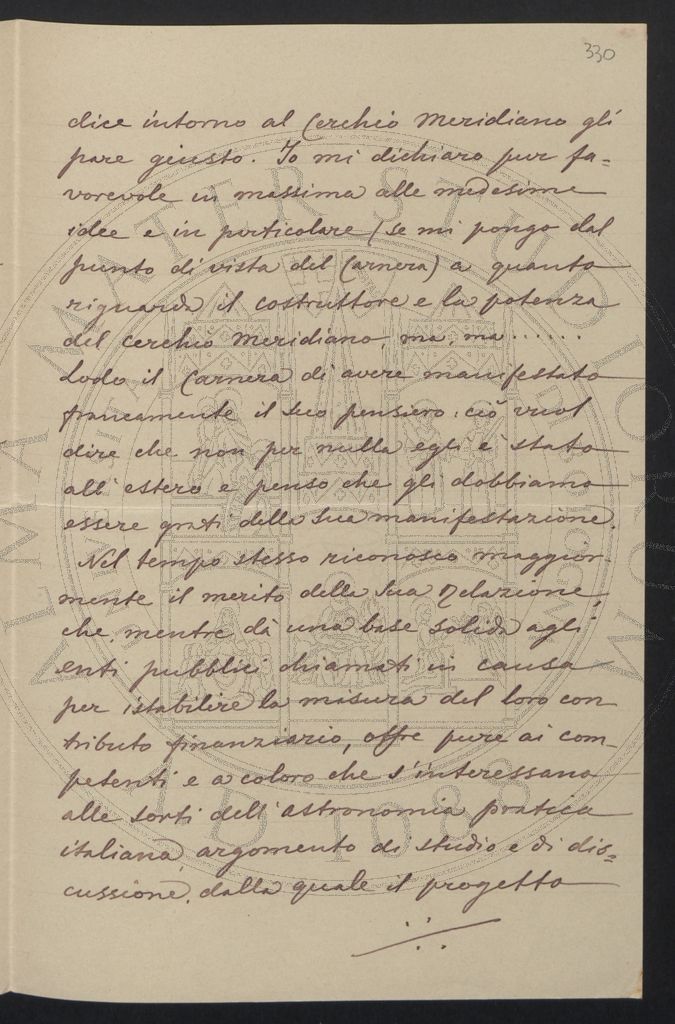 330
dice intorno al Cerchio Meridiano gli
pare giusto. Io mi dichiaro pur fa-
vorevole in massima alle medesime
idee e in particolare (se mi pongo dal
punto di vista del Carnera) a quanto
riguarda il costruttore e la potenza
del cerchio Meridiano, ma, ma......
Lodo il Carnera di avere manifestato
francamente il suo pensiero: ciò vuol
dire che non per nulla egli è stato
all'estero e penso che gli dobbiamo
essere grati della sua manifestazione.
Nel tempo stesso riconosco maggior-
mente il merito della sua Relazione,
che, mentre dà una base solida agli
enti pubblici chiamati in causa
per istabilire la misura del loro con
tributo finanziario, offre pure ai com-
petenti e a coloro che s'interessano
alle sorti dell'astronomia pratica
italiana, argomento di studio e di dis=
cussione, dalla quale il progetto
ALMA MATER STUDIORUM
A.D. 1088